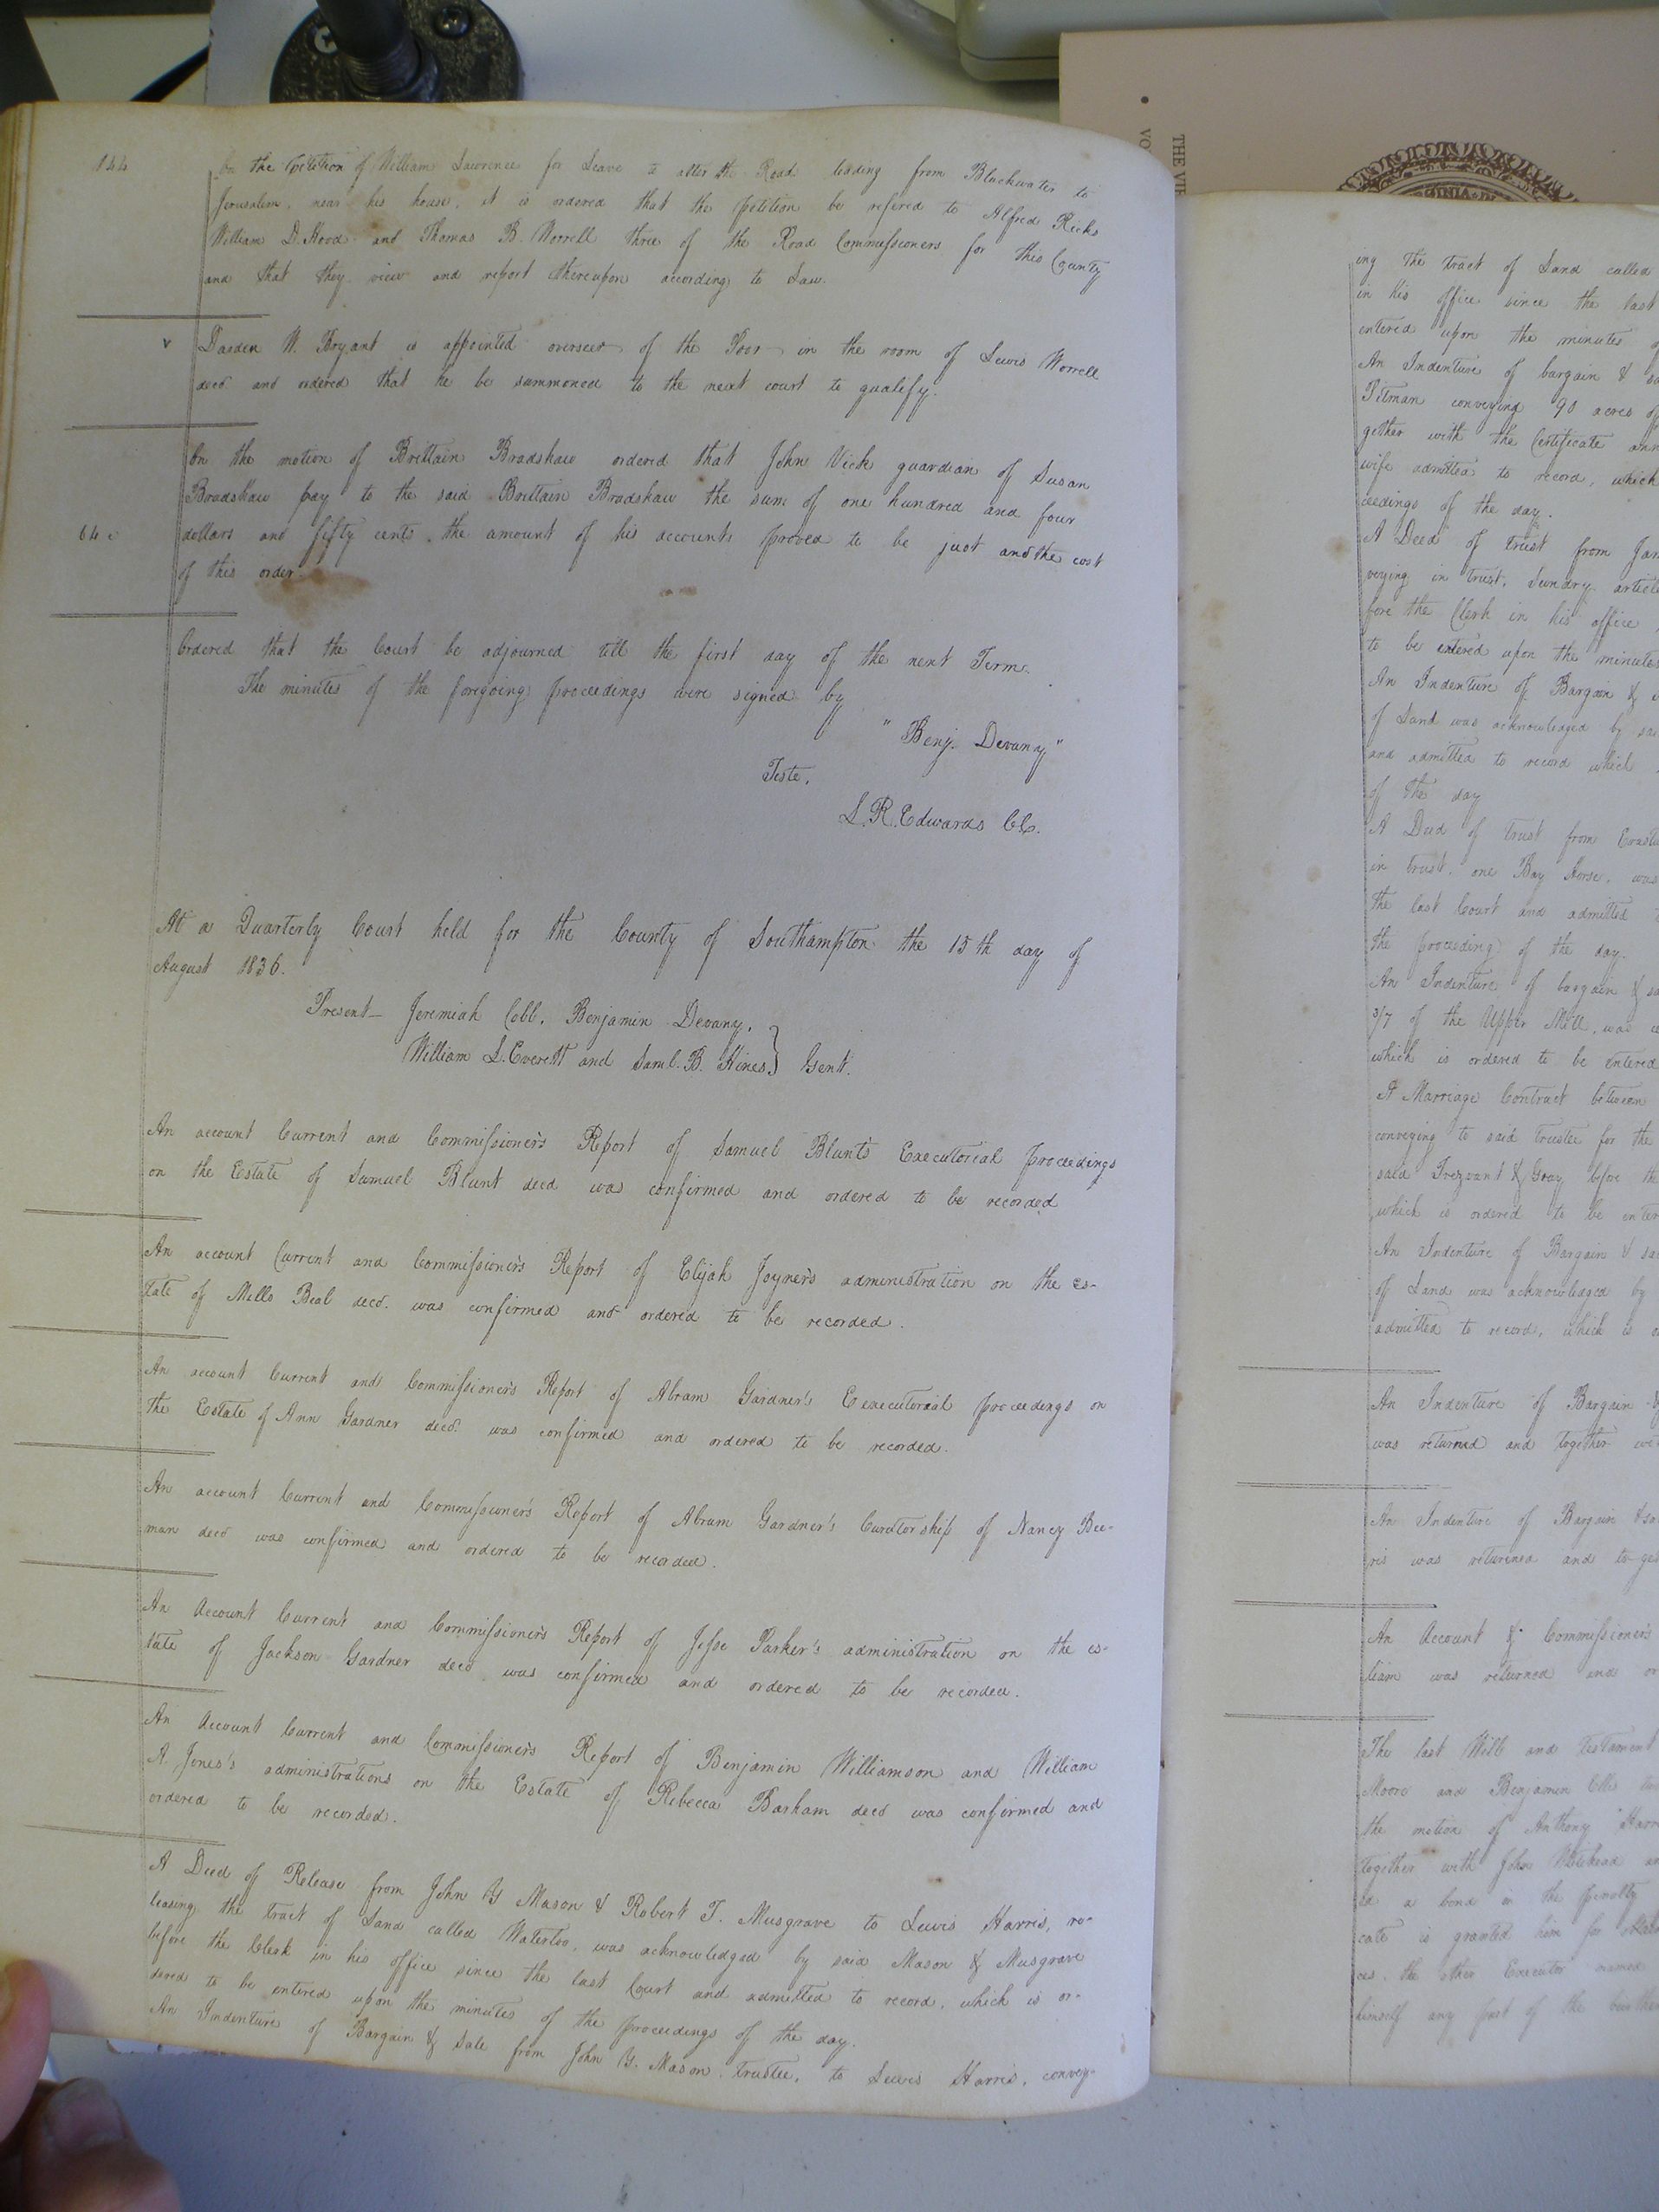 144
On the Petition of William Lawrence for Leave to alter the Road leading from Blackwater to
Jerusalem near his house, it is ordered that the petition be refered to Alfred Ricks
William D. Hood and Thomas B. Worrell three of the Road Commissioners for this County
and that they view and report thereupon according to Law.
v Darden W. Bryant is appointed overseer of the Poor in the room of Lewis Worrell
decd and ordered that he be summoned to the next court to qualify.
On the motion of Brittain Bradshaw ordered that John Vick guardian of Susan
Bradshaw pay to the said Brittain Bradshaw the sum of one hundred and four
64 c dollars and fifty cents, the amount of his accounts proved to be just and the cost
of this order
Ordered that the Court be adjourned till the first day of the next Term.
The minutes of the foregoing proceedings were signed by
"Benj. Devany"
Teste,
L. R. Edwards CC.
At a Quarterly Court held for the County of Southampton the 15th day of
August 1836.
Present— Jeremiah Cobb, Benjamin Devany,
William L. Everett and Saml. B. Hines } Gent.
An account Current and Commissioner's Report of Samuel Blunts Executorial proceedings
on the Estate of Samuel Blunt decd was confirmed and ordered to be recorded
An account Current and Commissioner's Report of Elijah Joyner's administration on the es-
tate of Mills Beal decd. was confirmed and ordered to be recorded.
An account Current and Commissioner's Report of Abram Gardner's Eexecutorial proceedings on
the Estate of Ann Gardner decd. was confirmed and ordered to be recorded.
An account Current and Commissioner's Report of Abram Gardner's Curatorship of Nancy Bee-
man decd was confirmed and ordered to be recorded.
An Account Current and Commissioner's Report of Jesse Parker's administration on the es-
tate of Jackson Gardner decd was confirmed and ordered to be recorded.
An Account Current and Commissioner's Report of Benjamin Williamson and William
A. Jones's administrations on the Estate of Rebecca Barham decd was confirmed and
ordered to be recorded.
A Deed of Release from John Y Mason & Robert T. Musgrave to Lewis Harris, re-
leasing the tract of Land called Waterloo, was acknowledged by said Mason & Musgrave
before the Clerk in his office since the last Court and admitted to record, which is or-
dered to be entered upon the minutes of the proceedings of the day.
An Indenture of Bargain & Sale from John Y. Mason, trustee, to Lewis Harris, convey-
THE VI
VO
GINIA
ing the tract of Land called
in his office since the last
entered upon the minutes
An Indenture of bargain &
Pitman conveying 90 acres of
gether with the Certificate ann
wife admitted to record, which
ceedings of the day.
A Deed of trust from Jam
veying in trust, Sundry article
fore the Clerk in his office
to be entered upon the minutes
An Indenture of Bargain &
of Land was acknowledged by
and admitted to record which
of the day
A Deed of trust from
in trust, one Bay Horse, was
the last Court and admitted
the proceeding of the day.
An Indenture of bargain &
3/7 of the Upper Mill, was
which is ordered to be entered
A Marriage Contract between
conveying to said trustee for the
said Trezvant & Gray before the
which is ordered to be enter
An Indenture of Bargain &
of Land was acknowledged by
admitted to record, which is
An Indenture of Bargain
was returned and together
An Indenture of Bargain
ris was returned and toge
An Account & Commissioner's
liam was returned and or
The last Will and testament
Moore and Benjamin
the motion of Anthony
together with John
a bond in the penalty
cate is granted him for
ces, the other Executor named
himself any part of the